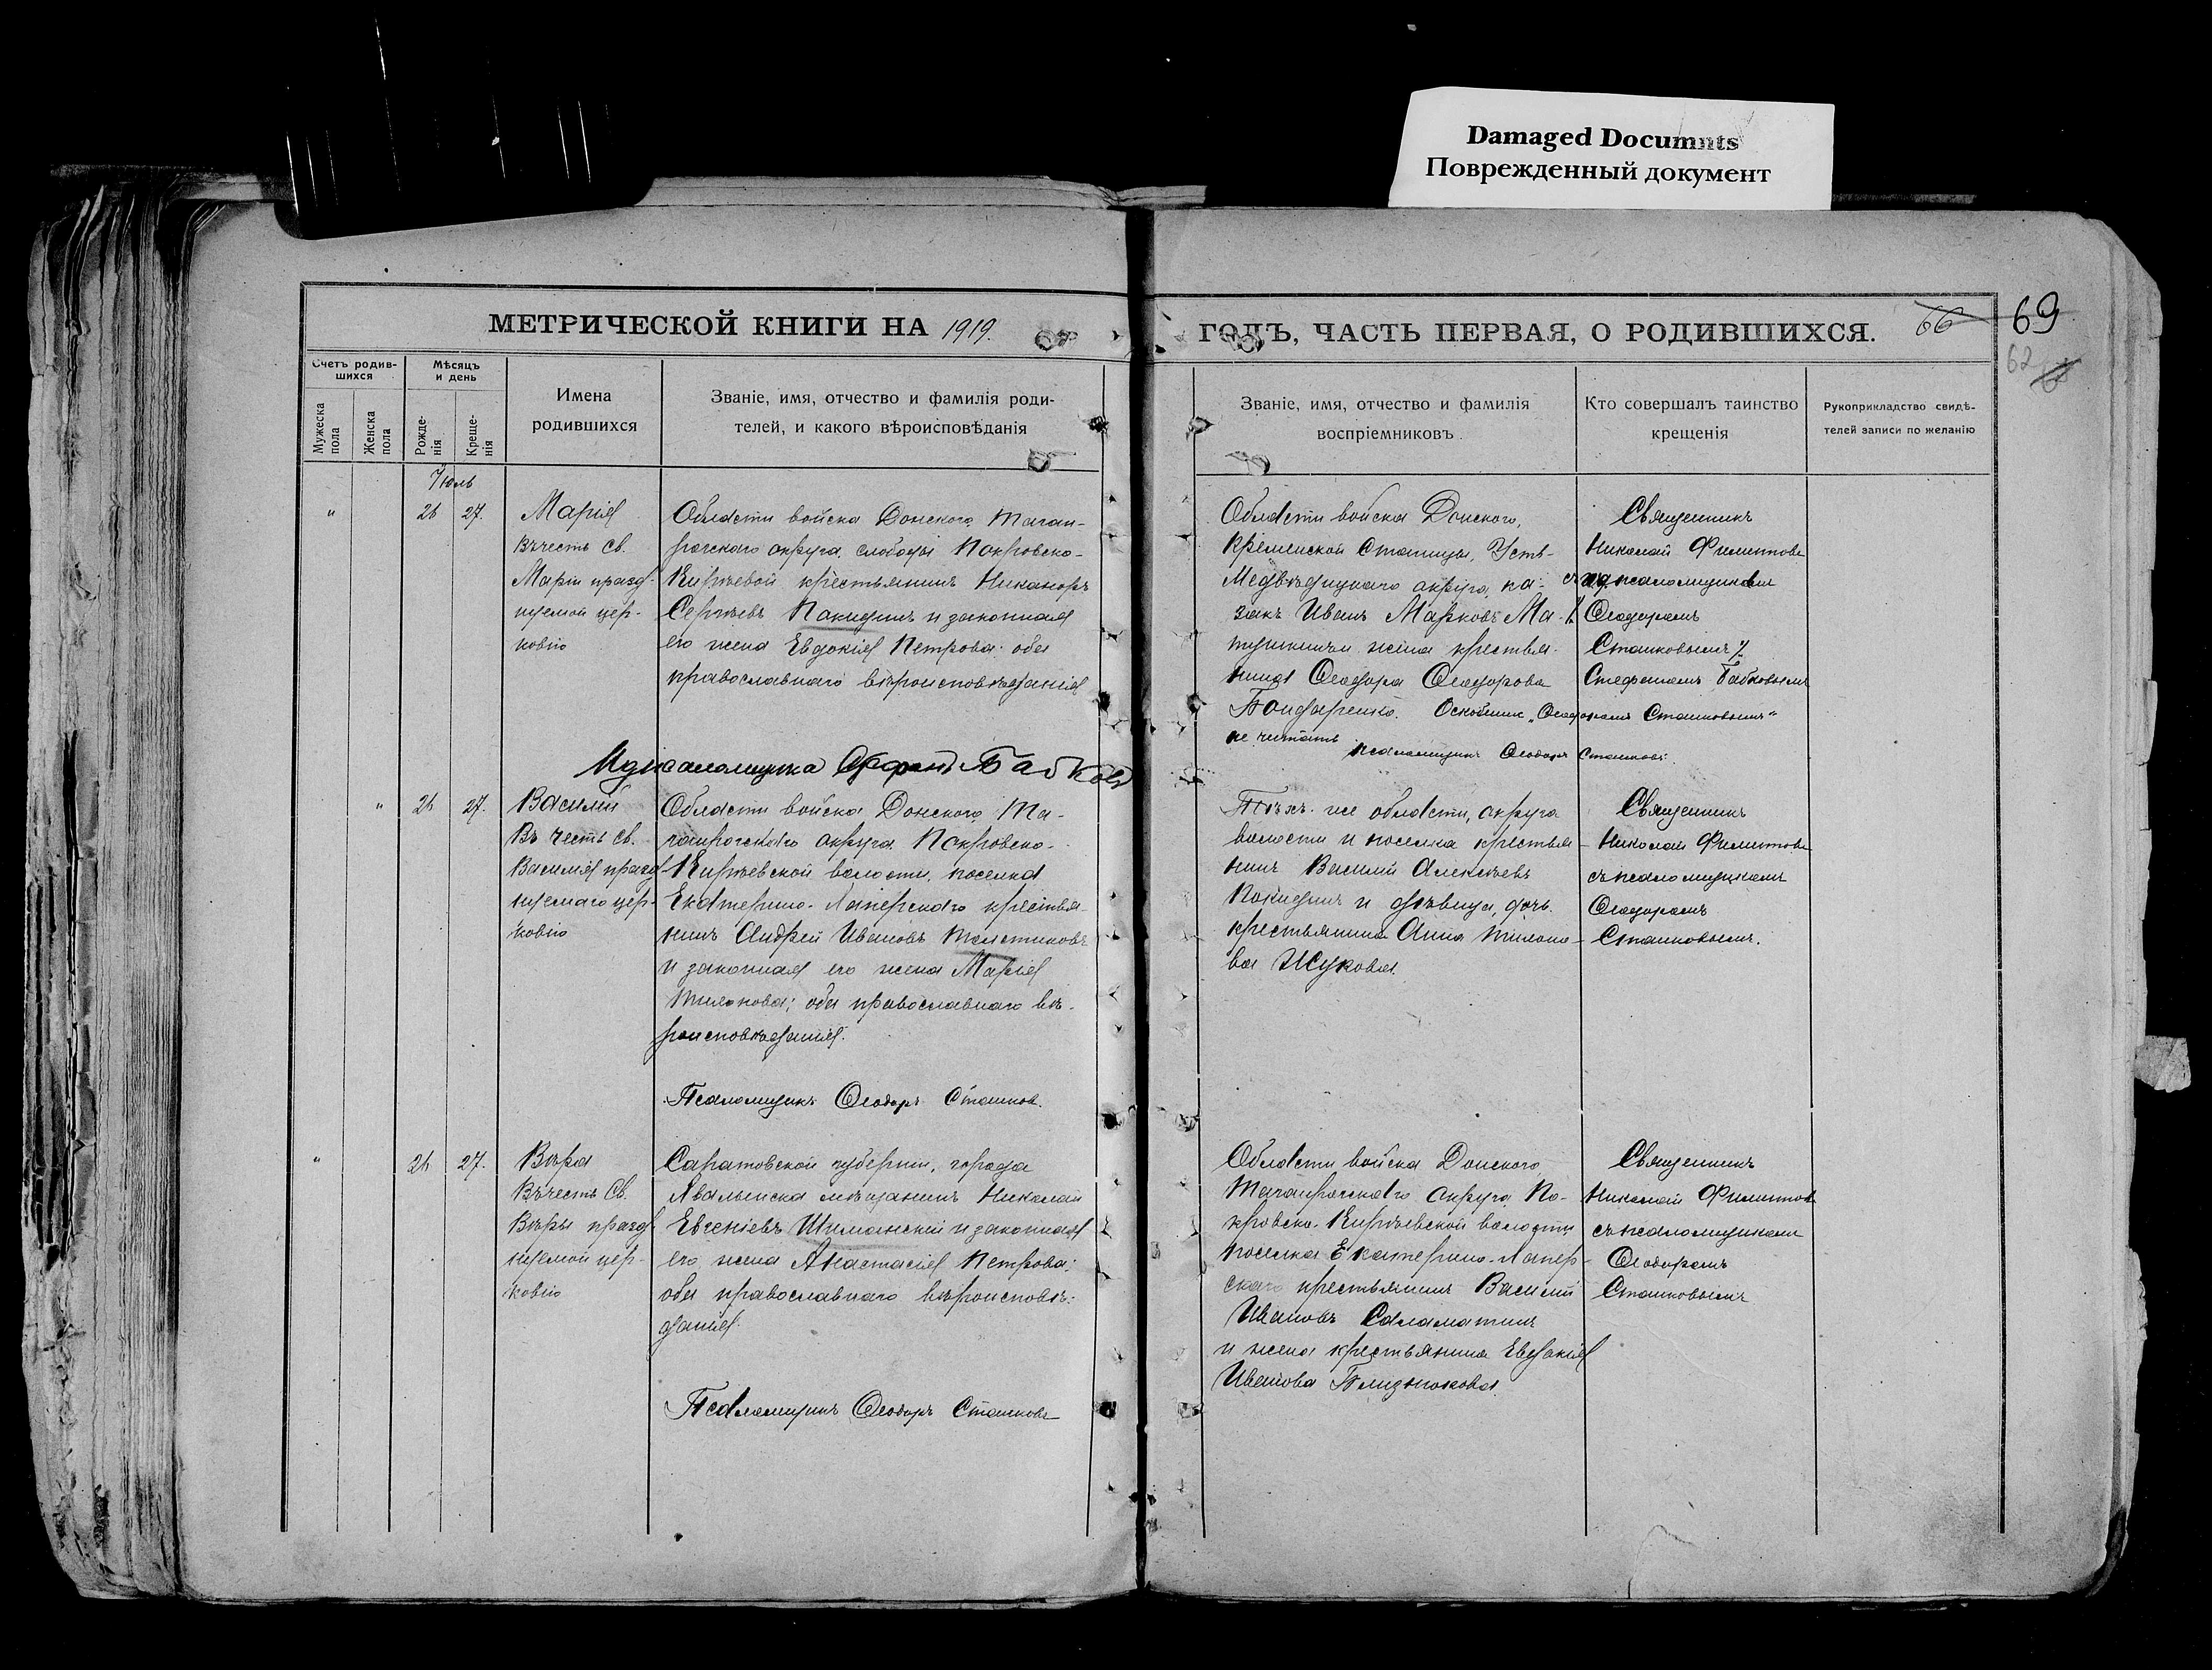 Damaged Documnts
Поврежденный документ
МЕТРИЧЕСКОЙ КНИГИ НА 1919.
ГОДЪ, ЧАСТЬ ПЕРВАЯ, О РОДИВШИХСЯ.
66 69
62
Счетъ родив-
шихся
Мѣсяцъ
и день
Мужеска
пола
Женска
пола
Рожде-
нія
Креще-
нія
Имена
родившихся
Званіе, имя, отчество и фамилія роди-
телей, и какого вѣроисповѣданія
Званіе, имя, отчество и фамилія
воспріемниковъ.
Кто совершалъ таинство
крещенія
Рукоприкладство свидѣ-
телей записи по желанію
Іюль
" 26 27.
Марія
Въ честь св.
Маріи празд-
нуемой цер-
ковію
Области войска Донского, Таган-
рогскаго округа, слободы Покровско-
Кирѣевой крестьянинъ Никаноръ
Сергѣевъ Пакидинъ и законная
его жена Евдокія Петрова; оба
православнаго вѣроисповѣданія
Области войска Донского,
Кременской Станицы, Усть-
Медвѣдицкаго округа, ка-
закъ Иванъ Марковъ Ма-
и жена крестья-
нина Ѳеодора Ѳеодорова
Бондаренко.
Священникъ
Николай Филиппов
псаломщикомъ
Ѳеодоромъ
Сташковымъ
Стефаномъ Бабковымъ
"Ѳеодоромъ Сташковымъ"
не читать
псаломщикъ Ѳеодоръ Сташковъ.
псаломщика Бабковъ
" 26 27.
Василій
Въ честь св.
Василія празд-
нуемаго цер-
ковію
Области войска Донского, Та-
ганрогскаго округа Покровско-
Кирѣевской волости, поселка
Екатерино-Хаперскаго крестья-
нинъ Андрей Ивановъ Толстиковъ
и законная его жена Марія
Тихонова; оба православнаго вѣ-
роисповѣданія.
Псаломщикъ Ѳеодоръ Сташков.
Тѣхъ-же области, округа
волости и поселка крестья-
нинъ Василій Алексѣевъ
Покидинъ и дѣвица, дочь
крестьянина Анна Тихоно-
ва Жукова.
Священникъ
Николай Филиппов
съ псаломщикомъ
Ѳеодоромъ
Сташковымъ.
" 26 27.
Вѣра
Въ честь Св.
Вѣры празд-
нуемой цер-
ковію
Саратовской губерніи, города
Хвалынска мѣщанинъ Николай
Евгеніевъ Шиманскій и законная
его жена Анастасія Петрова;
оба православнаго вѣроисповѣ-
данія.
Псаломщикъ Ѳеодоръ Сташковъ
Области войска Донского,
Таганрогскаго округа, По-
кровско-Кирѣевской волости
поселка Екатерино-Хапер-
скаго крестьянинъ Василій
Ивановъ Саламатинъ
и жена крестьянина Евдокія
Иванова Близнюкова.
Священникъ
Николай Филиппов
съ псаломщикомъ
Ѳеодоромъ
Сташковымъ